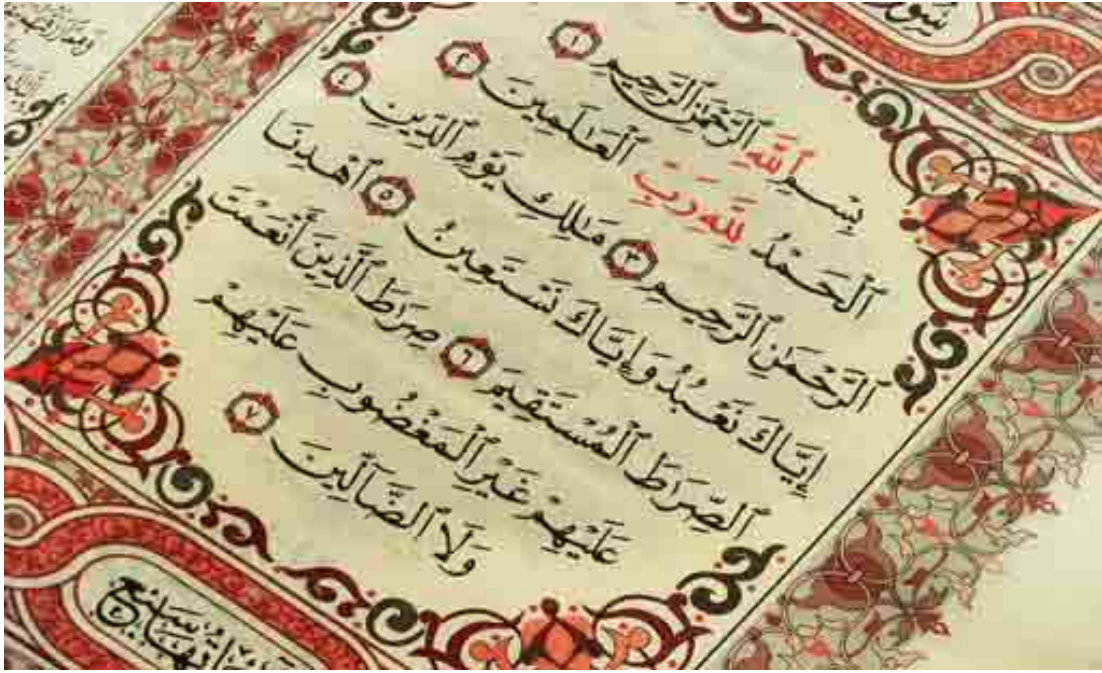 بِسْمِ ٱللَّهِ ٱلرَّحْمَٰنِ ٱلرَّحِيمِ ١
ٱلْحَمْدُ لِلَّهِ رَبِّ ٱلْعَٰلَمِينَ ٢
ٱلرَّحْمَٰنِ ٱلرَّحِيمِ ٣ مَٰلِكِ يَوْمِ ٱلدِّينِ ٤
إِيَّاكَ نَعْبُدُ وَإِيَّاكَ نَسْتَعِينُ ٥ ٱهْدِنَا
ٱلصِّرَٰطَ ٱلْمُسْتَقِيمَ ٦ صِرَٰطَ ٱلَّذِينَ أَنْعَمْتَ
عَلَيْهِمْ غَيْرِ ٱلْمَغْضُوبِ عَلَيْهِمْ
وَلَا ٱلضَّآلِّينَ ٧
سبع